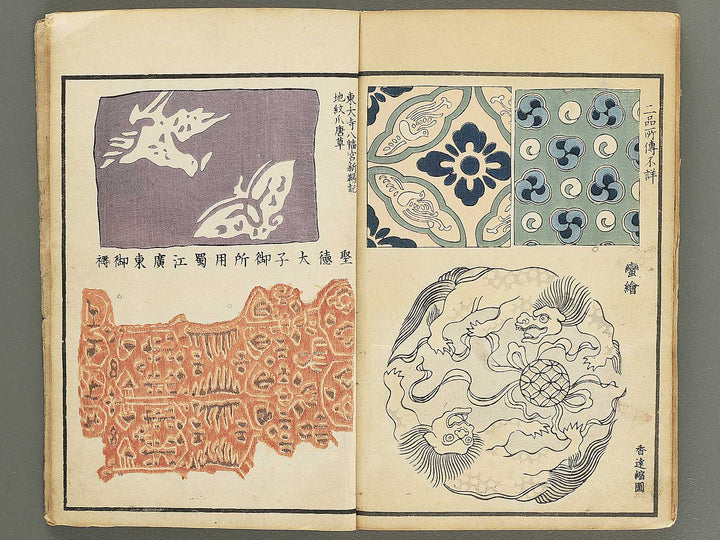 二品所傳不詳
蠻繪
香逹縮圖
東大寺八幡宮新鞨記
地紋爪唐草
聖德大子御所用蜀江廣東御褥